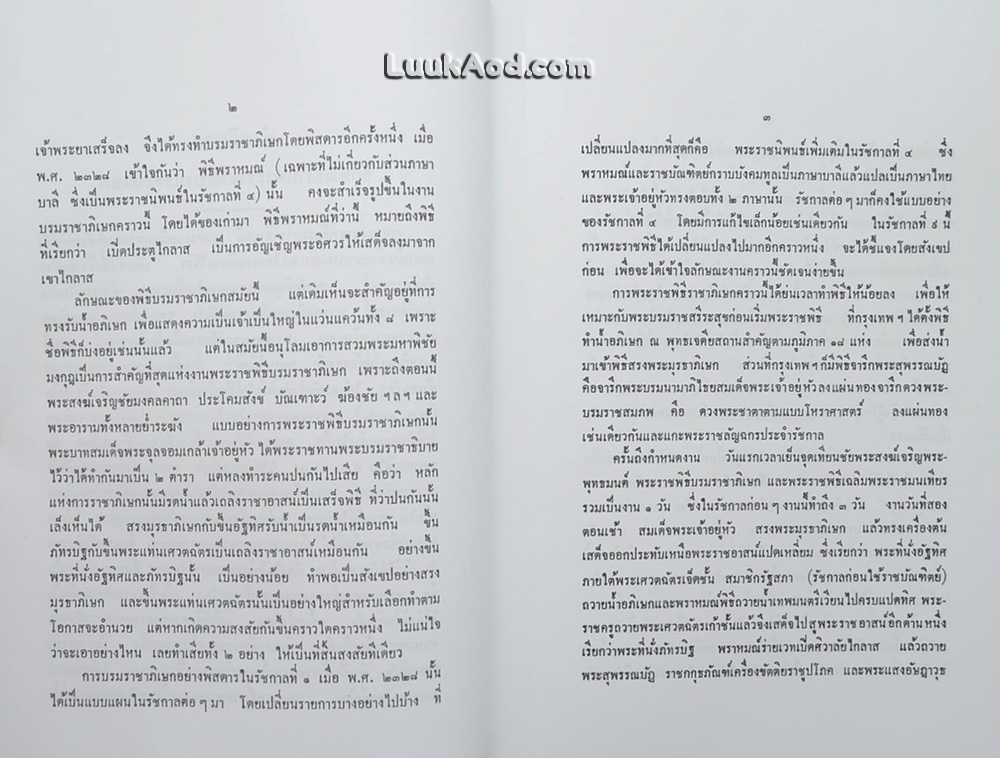 LuukAod.com
๒
เจ้าพระยาเสร็จลง จึงได้ทรงทำบรมราชาภิเษกโดยพิสดารอีกครั้งหนึ่ง เมื่อ
พ.ศ. ๒๓๒๘ เข้าใจกันว่า พิธีพราหมณ์ (เฉพาะที่ไม่เกี่ยวกับส่วนภาษา
บาลี ซึ่งเป็นพระราชนิพนธ์ในรัชกาลที่ ๔) นั้น คงจะสำเร็จรูปขึ้นในงาน
บรมราชาภิเษกคราวนี้ โดยได้ของเก่ามา พิธีพราหมณ์ที่ว่านี้ หมายถึงพิธี
ที่เรียกว่า เบิดประตูไกลาส เป็นการอัญเชิญพระอิศวรให้เสด็จลงมาจาก
เขาไกลาส
ลักษณะของพิธีบรมราชาภิเษกสมัยนี้ แต่เดิมเห็นจะสำคัญอยู่ที่การ
ทรงรับน้ำอภิเษก เพื่อแสดงความเป็นเจ้าเป็นใหญ่ในแว่นแคว้นทั้ง ๘ เพราะ
ชื่อพิธีก็บ่งอยู่เช่นนั้นแล้ว แต่ในสมัยนี้อนุโลมเอาการสวมพระมหาพิชัย
มงกุฎเป็นการสำคัญที่สุดแห่งงานพระราชพิธีบรมราชาภิเษก เพราะถึงตอนนี้
พระสงฆ์เจริญชัยมงคลคาถา ประโคมสังข์ บัณเฑาะว์ ฆ้องชัย ฯลฯ และ
พระอารามทั้งหลายย่ำระฆัง แบบอย่างการพระราชพิธีบรมราชาภิเษกนั้น
พระบาทสมเด็จพระจุลจอมเกล้าเจ้าอยู่หัว ได้พระราชทานพระบรมราชาธิบาย
ไว้ว่าได้ทำกันมาเป็น ๒ ตำรา แต่หลงทำระคนปนกันไปเสีย คือว่า หลัก
แห่งการราชาภิเษกนั้นมีรดน้ำแล้วเถลิงราชาอาสน์เป็นเสร็จพิธี ที่ว่าปนกันนั้น
เล็งเห็นได้ สรงมุรธาภิเษกกับขึ้นอัฐทิศรับน้ำเป็นรดน้ำเหมือนกัน ขึ้น
ภัทรบิฐกับขึ้นพระแท่นเศวตฉัตรเป็นเถลิงราชาอาสน์เหมือนกัน อย่างขึ้น
พระที่นั่งอัฐทิศและภัทรบิฐนั้น เป็นอย่างน้อย ทำพอเป็นสังเขปอย่างสรง
มุรธาภิเษก และขึ้นพระแท่นเศวตฉัตรนั้นเป็นอย่างใหญ่สำหรับเลือกทำตาม
โอกาสจะอำนวย แต่หากเกิดความสงสัยกันขึ้นคราวใดคราวหนึ่ง ไม่แน่ใจ
ว่าจะเอาอย่างไหน เลยทำเสียทั้ง ๒ อย่าง ให้เป็นที่สิ้นสงสัยทีเดียว
การบรมราชาภิเษกอย่างพิสดารในรัชกาลที่ ๑ เมื่อ พ.ศ. ๒๓๒๘ นั้น
ได้เป็นแบบแผนในรัชกาลต่อๆ มา โดยเปลี่ยนรายการบางอย่างไปบ้าง ที่
๓
เปลี่ยนแปลงมากที่สุดก็คือ พระราชนิพนธ์เพิ่มเติมในรัชกาลที่ ๔ ซึ่ง
พราหมณ์และราชบัณฑิตย์กราบบังคมทูลเป็นภาษาบาลีแล้วแปลเป็นภาษาไทย
และพระเจ้าอยู่หัวทรงตอบทั้ง ๒ ภาษานั้น รัชกาลต่อๆ มาก็คงใช้แบบอย่าง
ของรัชกาลที่ ๔ โดยมีการแก้ไขเล็กน้อยเช่นเดียวกัน ในรัชกาลที่ ๙ นี้
การพระราชพิธีได้เปลี่ยนแปลงไปมากอีกคราวหนึ่ง จะได้ชี้แจงโดยสังเขป
ก่อน เพื่อจะได้เข้าใจลักษณะงานคราวนี้ชัดเจนง่ายขึ้น
การพระราชพิธีราชาภิเษกคราวนี้ได้ย่นเวลาทำพิธีให้น้อยลง เพื่อให้
เหมาะกับพระบรมราชสริระสุขก่อนเริ่มพระราชพิธี ที่กรุงเทพฯ ได้ตั้งพิธี
ทำน้ำอภิเษก ณ พุทธเจดียสถานสำคัญตามภูมิภาค ๑๘ แห่ง เพื่อส่งน้ำ
มาเข้าพิธีสรงพระมุรธาภิเษก ส่วนที่กรุงเทพฯ ก็มีพิธีจารึกพระสุพรรณบัฏ
คือจารึกพระบรมนามาภิไธยสมเด็จพระเจ้าอยู่หัวลงแผ่นทองจารึกดวงพระ-
บรมราชสมภพ คือ ดวงพระชาตาตามแบบโหราศาสตร์ ลงแผ่นทอง
เช่นเดียวกันและแกะพระราชลัญฉกรประจำรัชกาล
ครั้นถึงกำหนดงาน วันแรกเวลาเย็นจุดเทียนชัยพระสงฆ์เจริญพระ-
พุทธมนต์ พระราชพิธีบรมราชาภิเษก และพระราชพิธีเฉลิมพระราชมนเทียร
รวมเป็นงาน ๑ วัน ซึ่งในรัชกาลก่อนๆ งานนี้ทำถึง ๓ วัน งานวันที่สอง
ตอนเช้า สมเด็จพระเจ้าอยู่หัว สรงพระมุรธาภิเษก แล้วทรงเครื่องต้น
เสด็จออกประทับเหนือพระราชอาสน์แปดเหลี่ยม ซึ่งเรียกว่า พระที่นั่งอัฐทิศ
ภายใต้พระเศวตฉัตรเจ็ดชั้น สมาชิกรัฐสภา (รัชกาลก่อนใช้ราชบัณฑิตย์)
ถวายน้ำอภิเษกและพราหมณ์พิธีถวายน้ำเทพมนตรีเวียนไปครบแปดทิศ พระ-
ราชครูถวายพระเศวตฉัตรเก้าชั้นแล้วจึงเสด็จไปสู่พระราชอาสน์อีกด้านหนึ่ง
เรียกว่าพระที่นั่งภัทรบิฐ พราหมณ์ร่ายเวทเปิดศิวาลัยไกลาส แล้วถวาย
พระสุพรรณบัฏ ราชกกุธภัณฑ์เครื่องขัตติยราชูปโภค และพระแสงอัษฎาวุธ